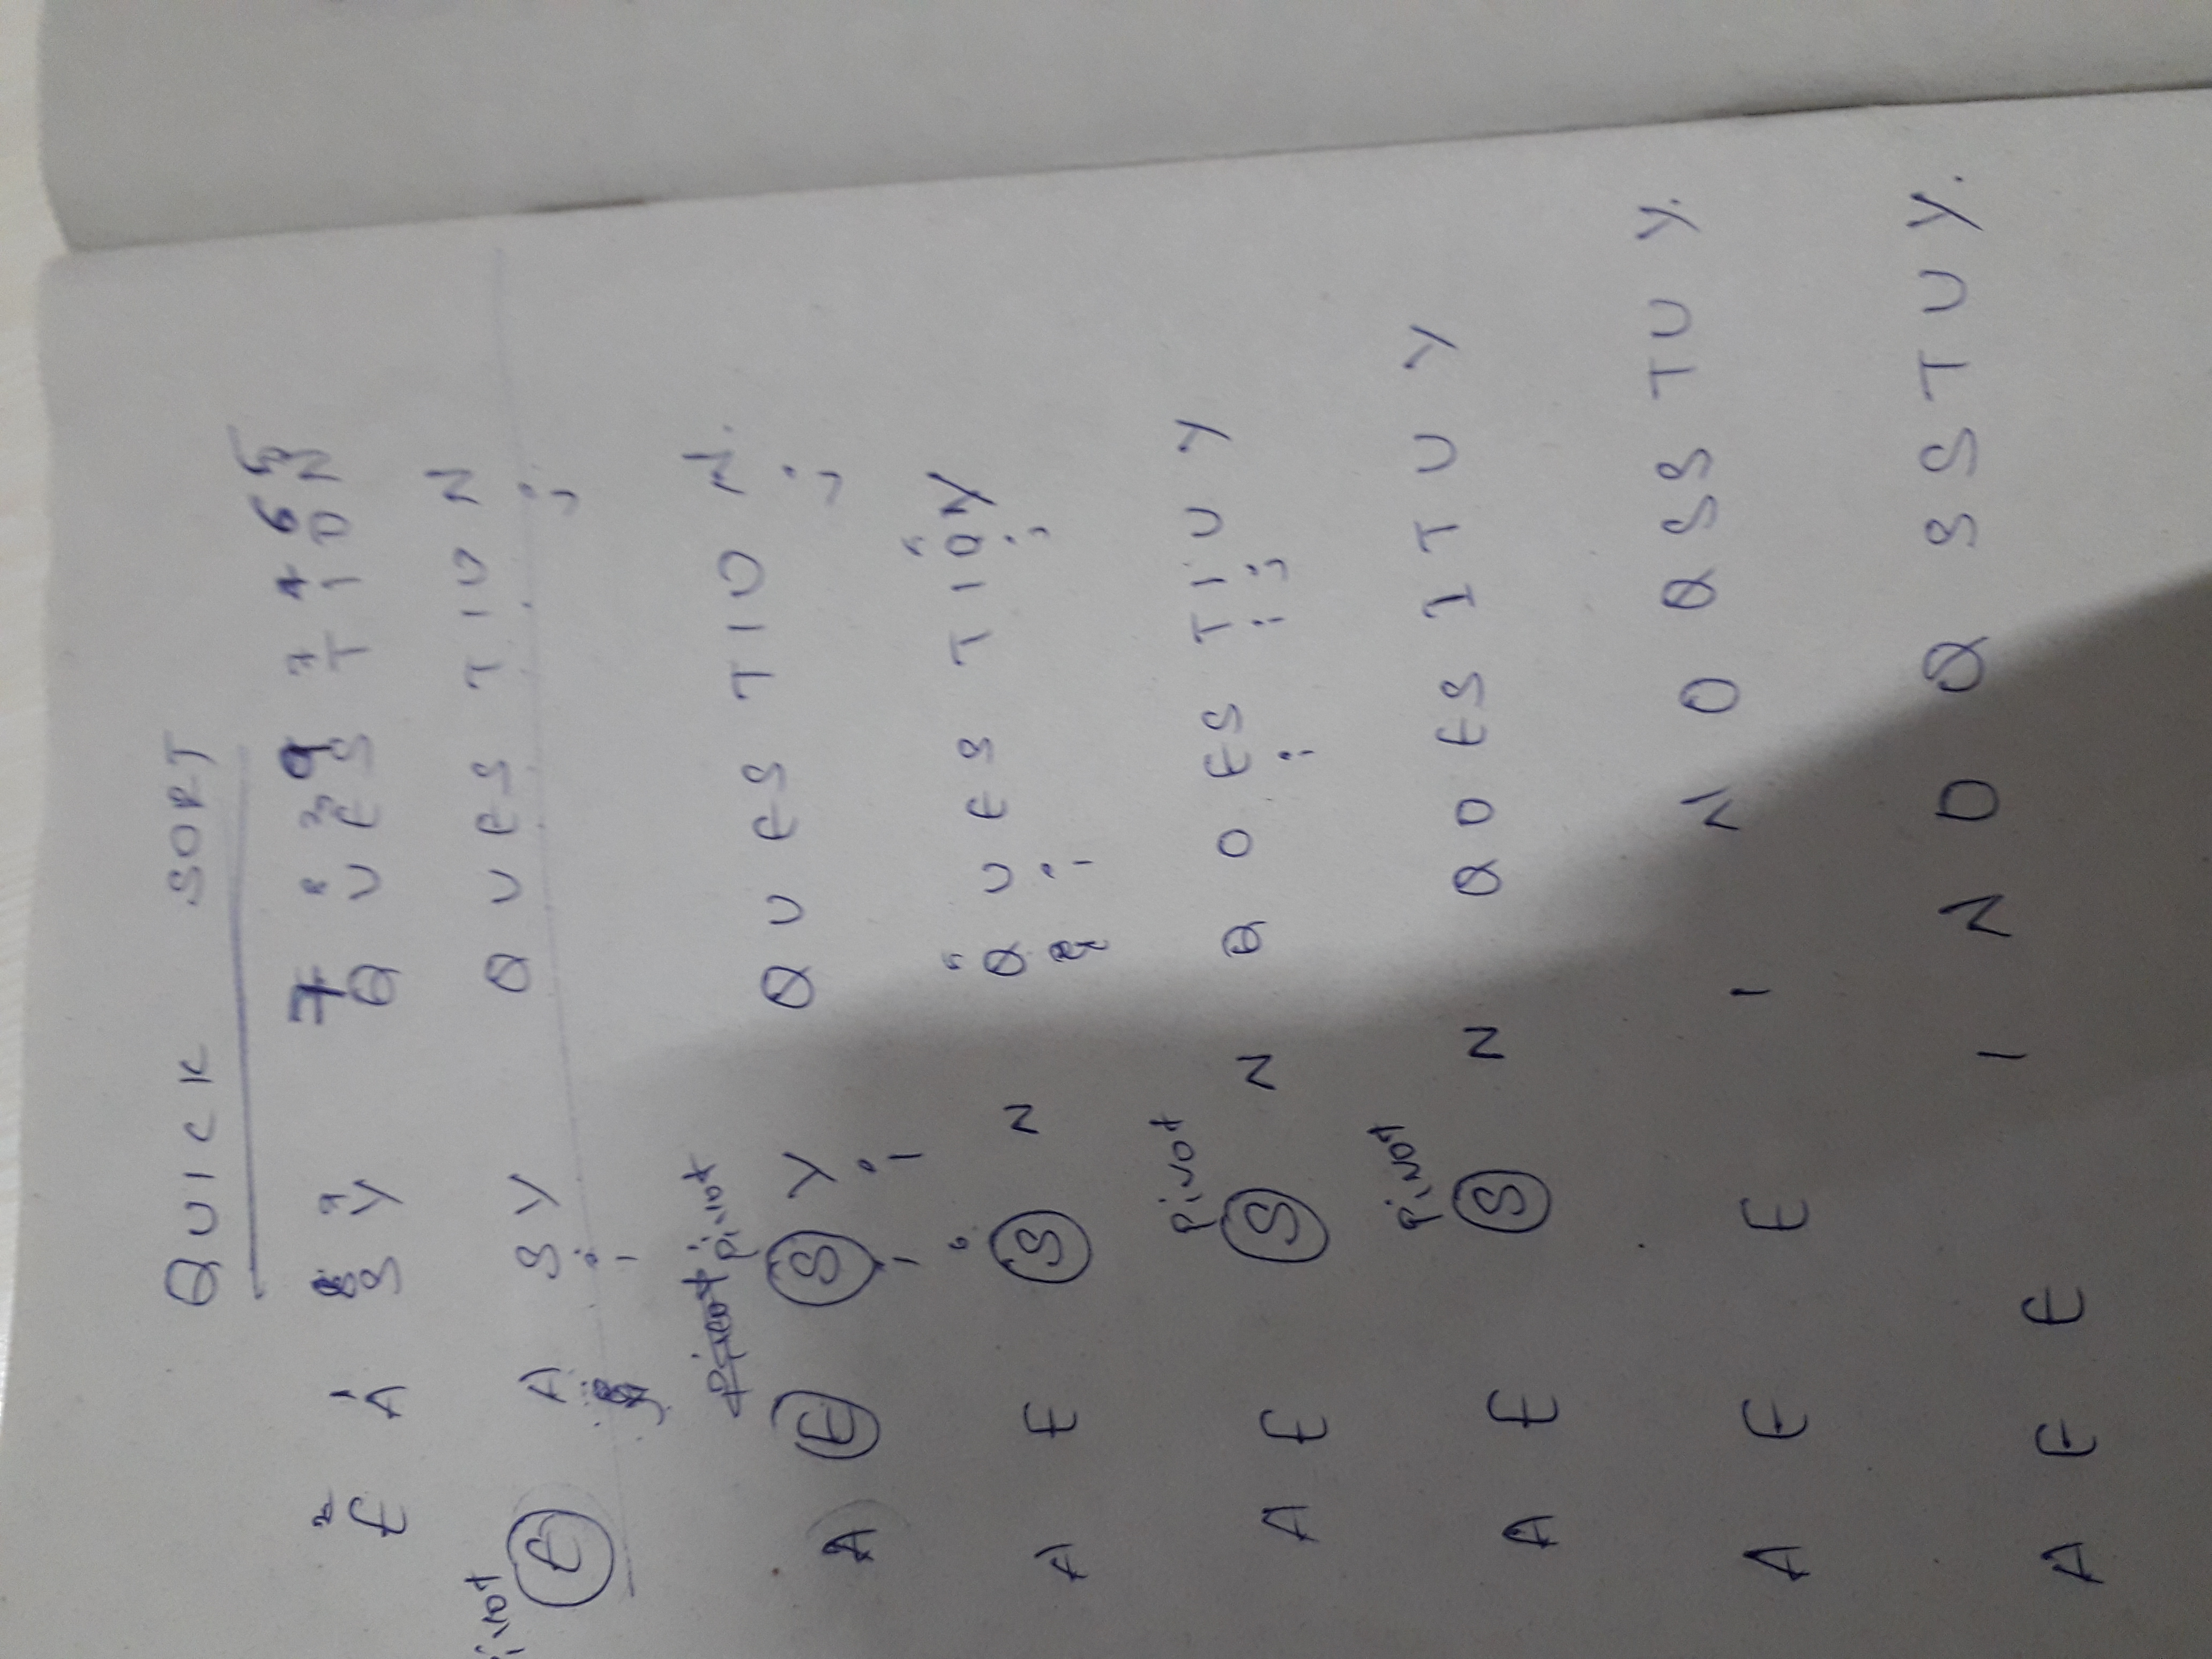 QUICK SORT
2 1 8 7 9 7 4 6 5
E A S Y Q U E S T I O N
pivot
E A S Y Q U E S T I O N
i j
pivot pivot
A E S Y Q U E S T I O N.
i i j
A E S N Q U E S T I O Y
i j
pivot
A E S N Q O E S T I U Y
i i j
pivot
A E S N Q O E S I T U Y
A E E I N O Q S S T U Y.
A E E I N O Q S S T U Y.